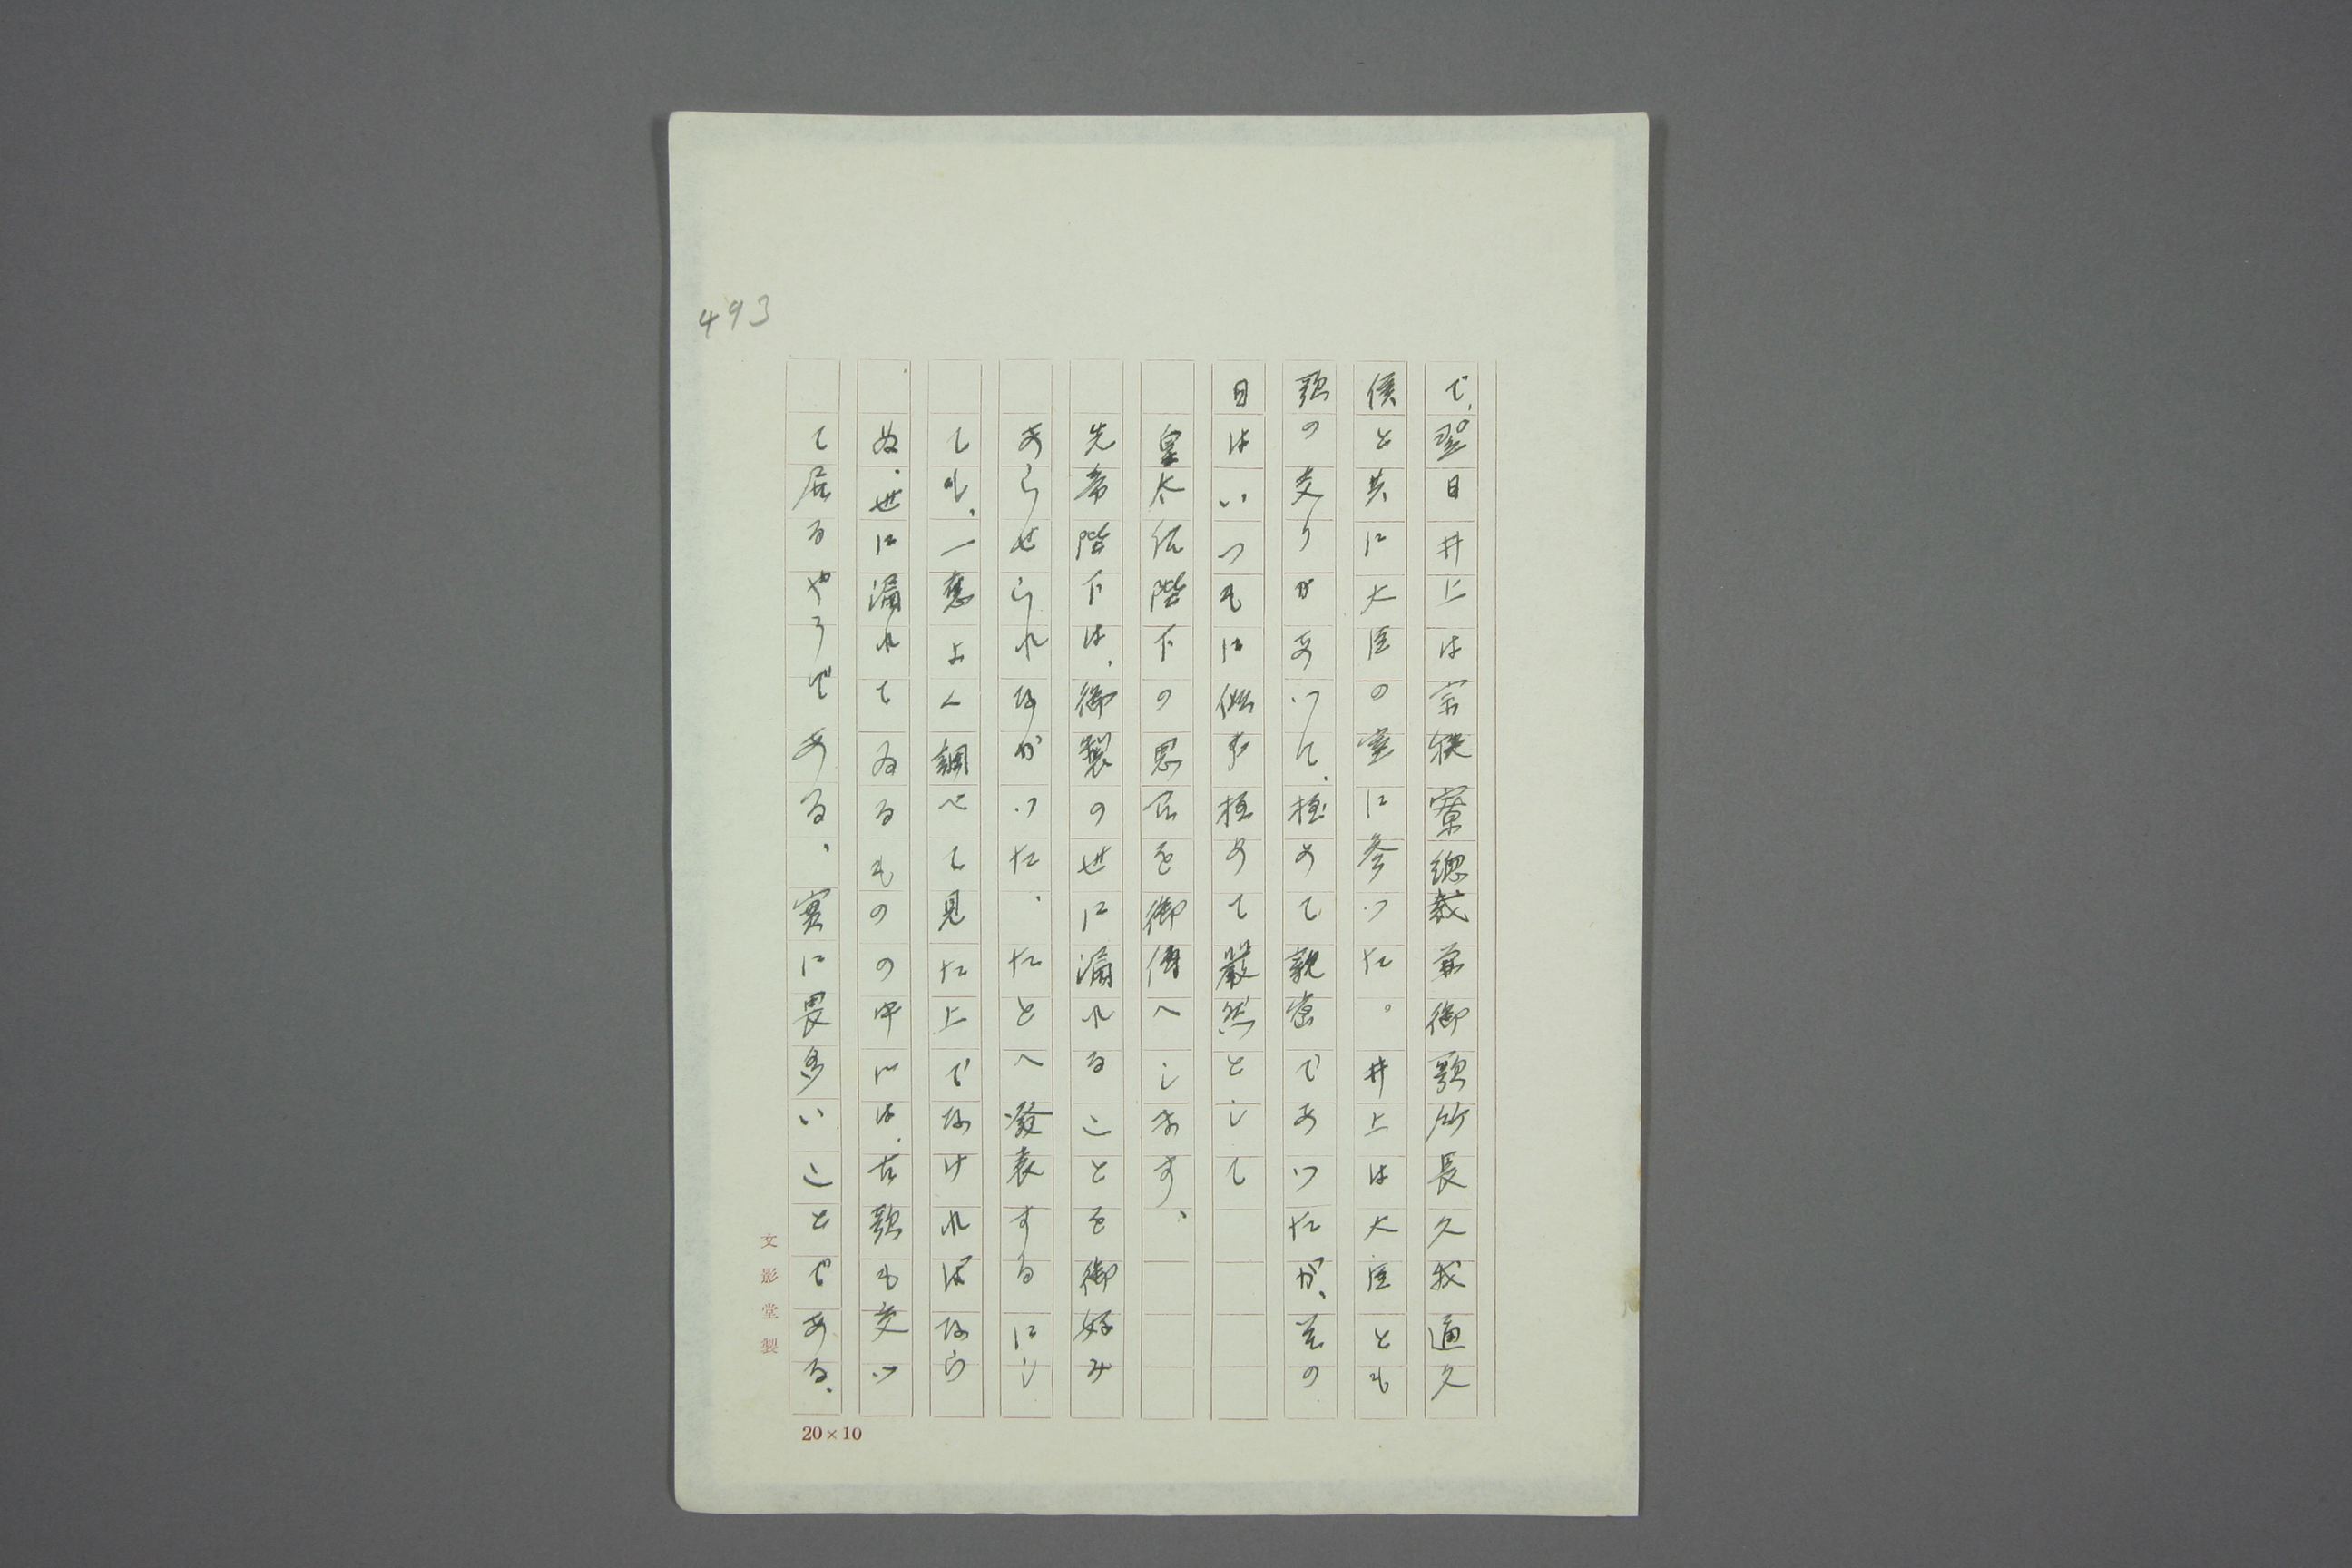 493
で、翌日井上は宗秩寮總裁兼御歌所長久我通久
侯と共に大臣の室に参つた。井上は大臣とも
歌の交りがあつて、極めて親密であつたが、其の
日はいつもに似ず極めて嚴然として
皇太后陛下の思召を御傳へします、
先帝陛下は、御製の世に漏れることを御好み
あらせられなかつた、たとへ發表するにし
ても、一應よく調べて見た上でなければなら
ぬ、世に漏れてゐるものの中には、古歌も交つ
て居るやうである、實に畏多いことである、
文影堂製
20×10